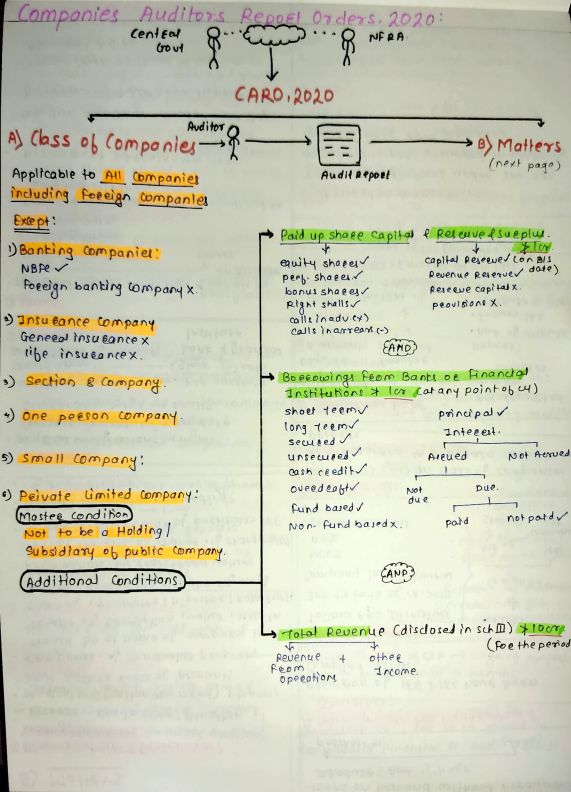 Companies Auditors Report Orders, 2020:
Central Govt
NFRA
CARO, 2020
A) Class of Companies
Auditor
Audit Report
B) Matters
(next page)
Applicable to All Companies
including foreign companies
Except:
1) Banking Companies:
NBFC ✓
Foreign banking company x.
2) Insurance Company
General insurance x
life insurance x.
3) Section 8 Company.
4) One person Company.
5) Small Company:
6) Private Limited Company:
Master Condition
Not to be a Holding/
Subsidiary of public company.
Additional Conditions
Paid up share Capital & Reserve & Surplus.
≯ 1cr
equity shares ✓
pref. shares ✓
bonus shares ✓
Right shalls ✓
calls in adv (x)
calls in arrear (-)
Capital Reserve ✓ (on B/S
Revenue Reserve ✓ date)
Reserve capital x.
provisions x.
AND
Borrowings from Banks or Financial
Institutions ≯ 1cr (at any point of
short term ✓
long term ✓
secured ✓
unsecured ✓
cash credit ✓
overdraft ✓
fund based ✓
Non-fund based x.
principal ✓
Interest.
Accrued
Not Accrued
Not due
Due.
paid
not paid ✓
AND
Total Revenue (disclosed in sch III) ≯ 10cr
(for the period
Revenue from operations + other Income.